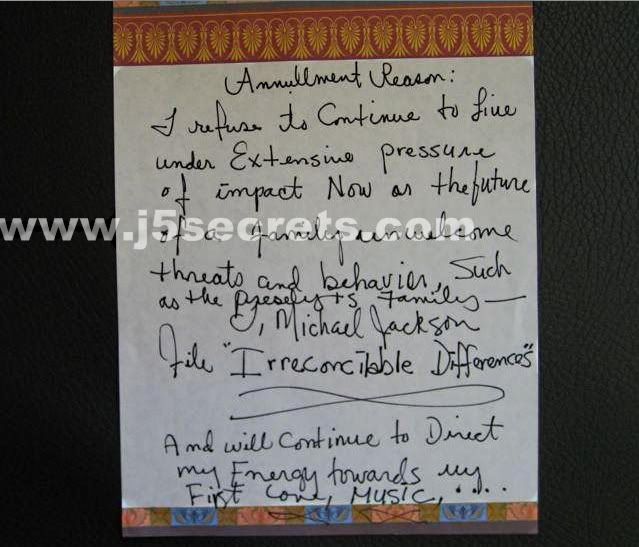 Annullment Reason:
I refuse to Continue to live
under Extensive pressure
of impact Now or the future
www.j5secrets.com
of a family unwelcome
threats and behavior, Such
as the Presely's Family —
I, Michael Jackson
File "Irreconcibble Differences"
And will Continue to Direct
my Energy towards my
First Love, MUSIC, .....